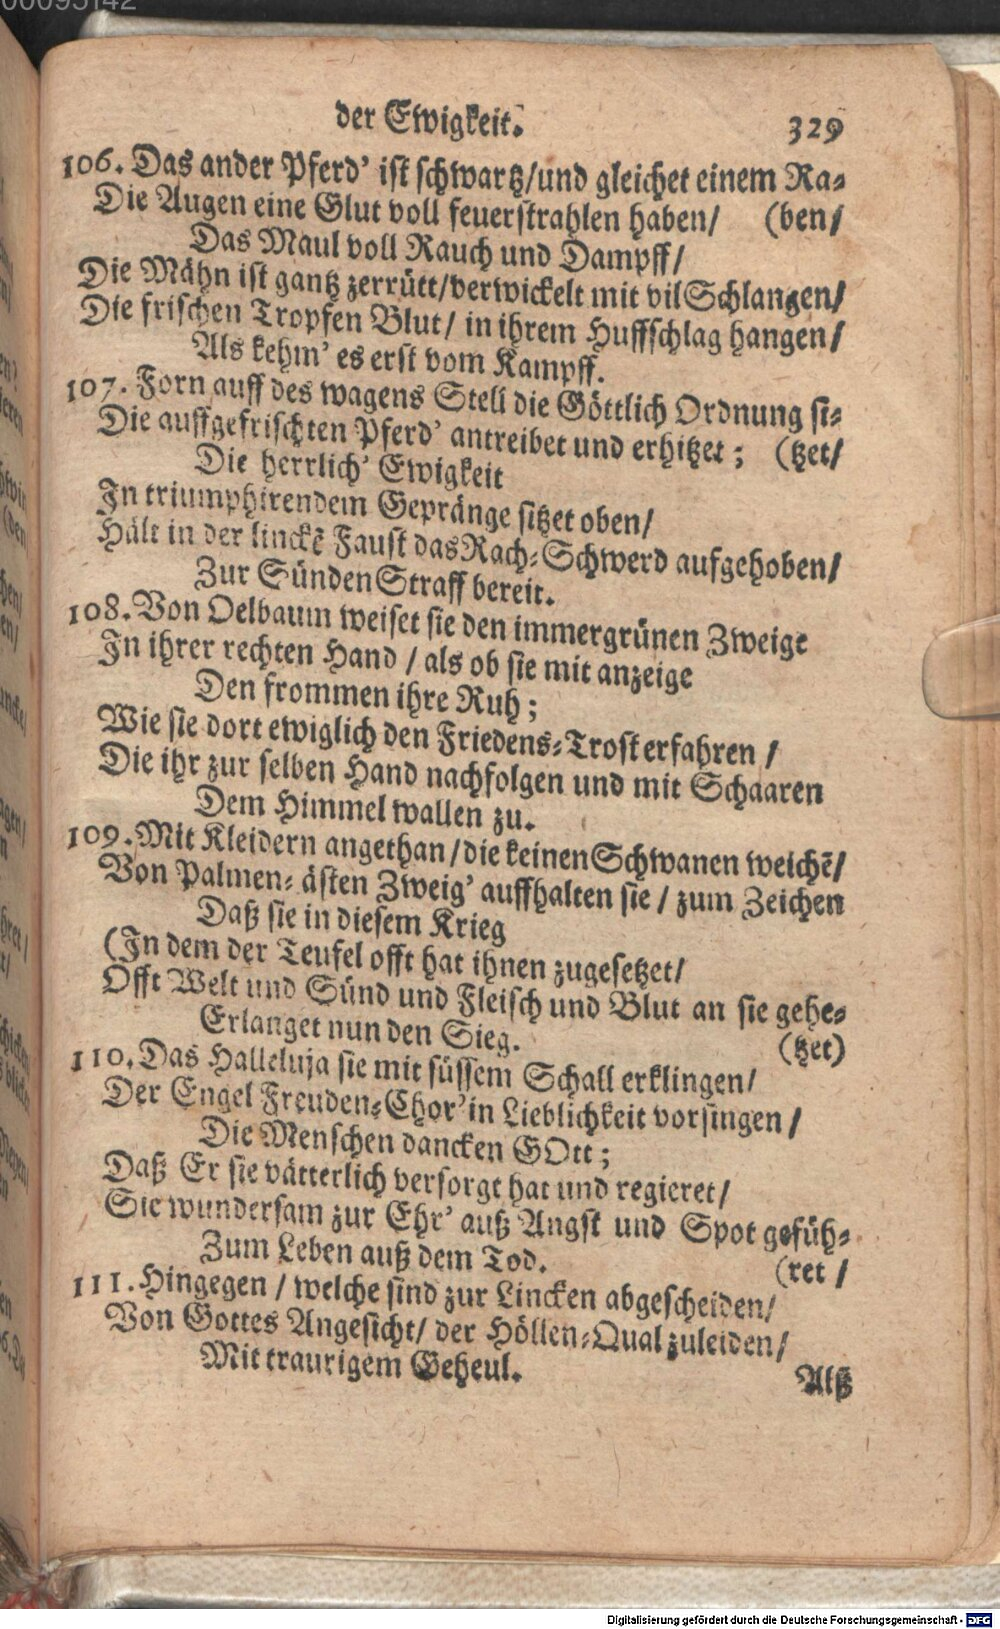 der Ewigkeit. 329
106. Das ander Pferd' ist schwartz/und gleichet einem Ra-
Die Augen eine Glut voll feuerstrahlen haben/ (ben/
Das Maul voll Rauch und Dampff/
Die Mähn ist gantz zerrütt/verwickelt mit vil Schlangen/
Die frischen Tropfen Blut/ in ihrem Huffschlag hangen/
Als kehm' es erst vom Kampff.
107. Forn auff des wagens Stell die Göttlich Ordnung si-
Die auffgefrischten Pferd' antreibet und erhitzet; (tzet/
Die herrlich' Ewigkeit
In triumphirendem Gepränge sitzet oben/
Hält in der linckē Faust das Rach-Schwerd aufgehoben/
Zur Sünden Straff bereit.
108. Von Oelbaum weiset sie den immergrünen Zweige
In ihrer rechten Hand / als ob sie mit anzeige
Den frommen ihre Ruh;
Wie sie dort ewiglich den Friedens-Trost erfahren /
Die ihr zur selben Hand nachfolgen und mit Schaaren
Dem Himmel wallen zu.
109. Mit Kleidern angethan/die keinen Schwanen weichē/
Von Palmen-ästen Zweig' auffhalten sie / zum Zeichen
Daß sie in diesem Krieg
(In dem der Teufel offt hat ihnen zugesetzet/
Offt Welt und Sünd und Fleisch und Blut an sie gehe-
Erlanget nun den Sieg. (tzet)
110. Das Halleluja sie mit süssem Schall erklingen/
Der Engel Freuden-Chor' in Lieblichkeit vorsingen /
Die Menschen dancken GOtt;
Daß Er sie vätterlich versorgt hat und regieret/
Sie wundersam zur Ehr' auß Angst und Spot gefüh-
Zum Leben auß dem Tod. (ret /
111. Hingegen / welche sind zur Lincken abgescheiden/
Von Gottes Angesicht/ der Höllen-Qual zuleiden/
Mit traurigem Geheul.
Alß
Digitalisierung gefördert durch die Deutsche Forschungsgemeinschaft - DFG